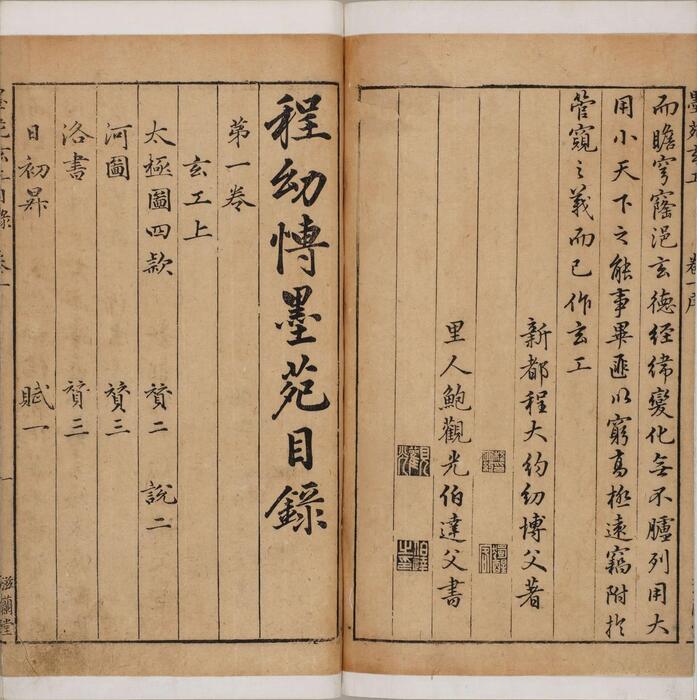 而瞻穹窿浥玄德經緯變化無不臚列用大
用小天下之能事畢匪以窮高極遠竊附於
管窺之義而已作玄工
新都程大約幼博父著
里人鮑觀光伯達父書
程幼博墨苑目錄
第一卷
玄工上
太極圖四款 贊二 說二
河圖 贊三
洛書 贊三
日初昇 賦一
滋蘭堂